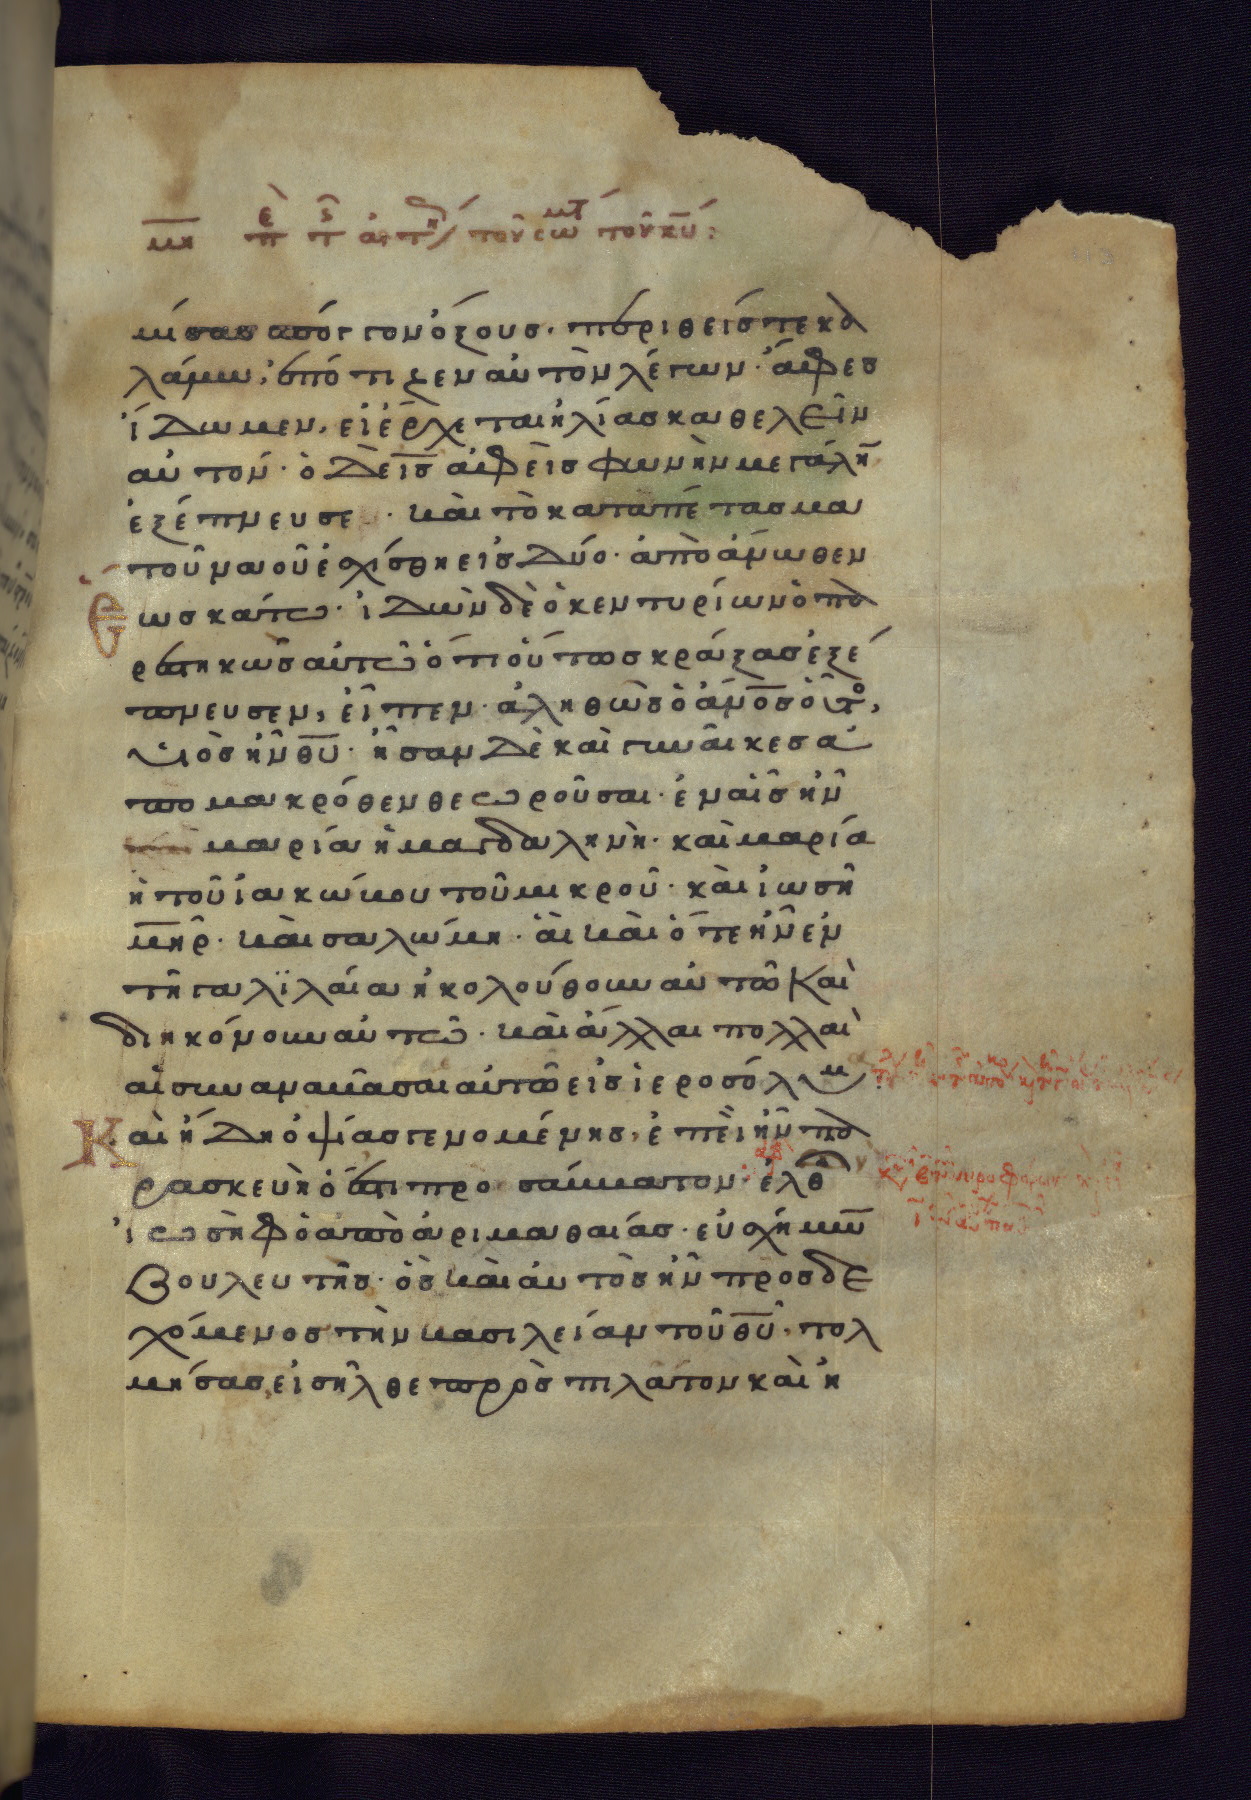 μη περὶ τῆς αἰτήσεως τοῦ σώματος τοῦ κυ:
μίσας σπόγγον ὄξους· περιθείς τε κα
λάμω, ἐπότιζεν αὐτὸν λέγων· ἄφες
ἴδωμεν, εἰ ἔρχεται ἠλίας καθελεῖν
αὐτόν· ὁ δὲ ις ἀφεὶς φωνὴν μεγάλην
ἐξέπνευσε· καὶ τὸ καταπέτασμα
τοῦ ναοῦ ἐσχίσθη εἰς δύο· ἀπὸ ἄνωθεν
ἕως κάτω· ἰδὼν δὲ ὁ κεντυρίων ὁ πα
ρεστηκὼς αὐτῶ ὅτι οὕτως κράξας ἐξέ
πνευσεν, εἶπεν· ἀληθῶς ὁ ανος οὗτος,
υἱὸς ἦν θυ· ἦσαν δὲ καὶ γυναῖκες ἀ
πο μακρόθεν θεωροῦσαι· ἐν αἷς ἦν
μαρία ἡ μαγδαληνὴ· καὶ μαρία
ἡ τοῦ ἰακώβου τοῦ μικροῦ· καὶ ἰωσῆ
μηρ· καὶ σαλώμη· αἳ καὶ ὅτε ἦν ἐν
τῆ γαλιλαία ἠκολούθουν αὐτῶ καὶ
διηκόνουν αὐτῶ· καὶ ἄλλαι πολλαὶ
αἱ συναναβᾶσαι αὐτῶ εἰς ἱεροσόλυμα
Καὶ ἤδη ὀψίας γενομένης, ἐπεὶ ἦν πα
ρασκευὴ ὅ ἐστι προσάββατον· ἐλθὼν
ἰωσὴφ ὁ ἀπὸ ἀριμαθαίας· εὐσχήμων
βουλευτὴς· ὃς καὶ αὐτὸς ἦν προσδε
χόμενος τὴν βασιλείαν τοῦ θυ· τολ
μήσας εἰσῆλθε πρὸς πιλᾶτον καὶ ἠ